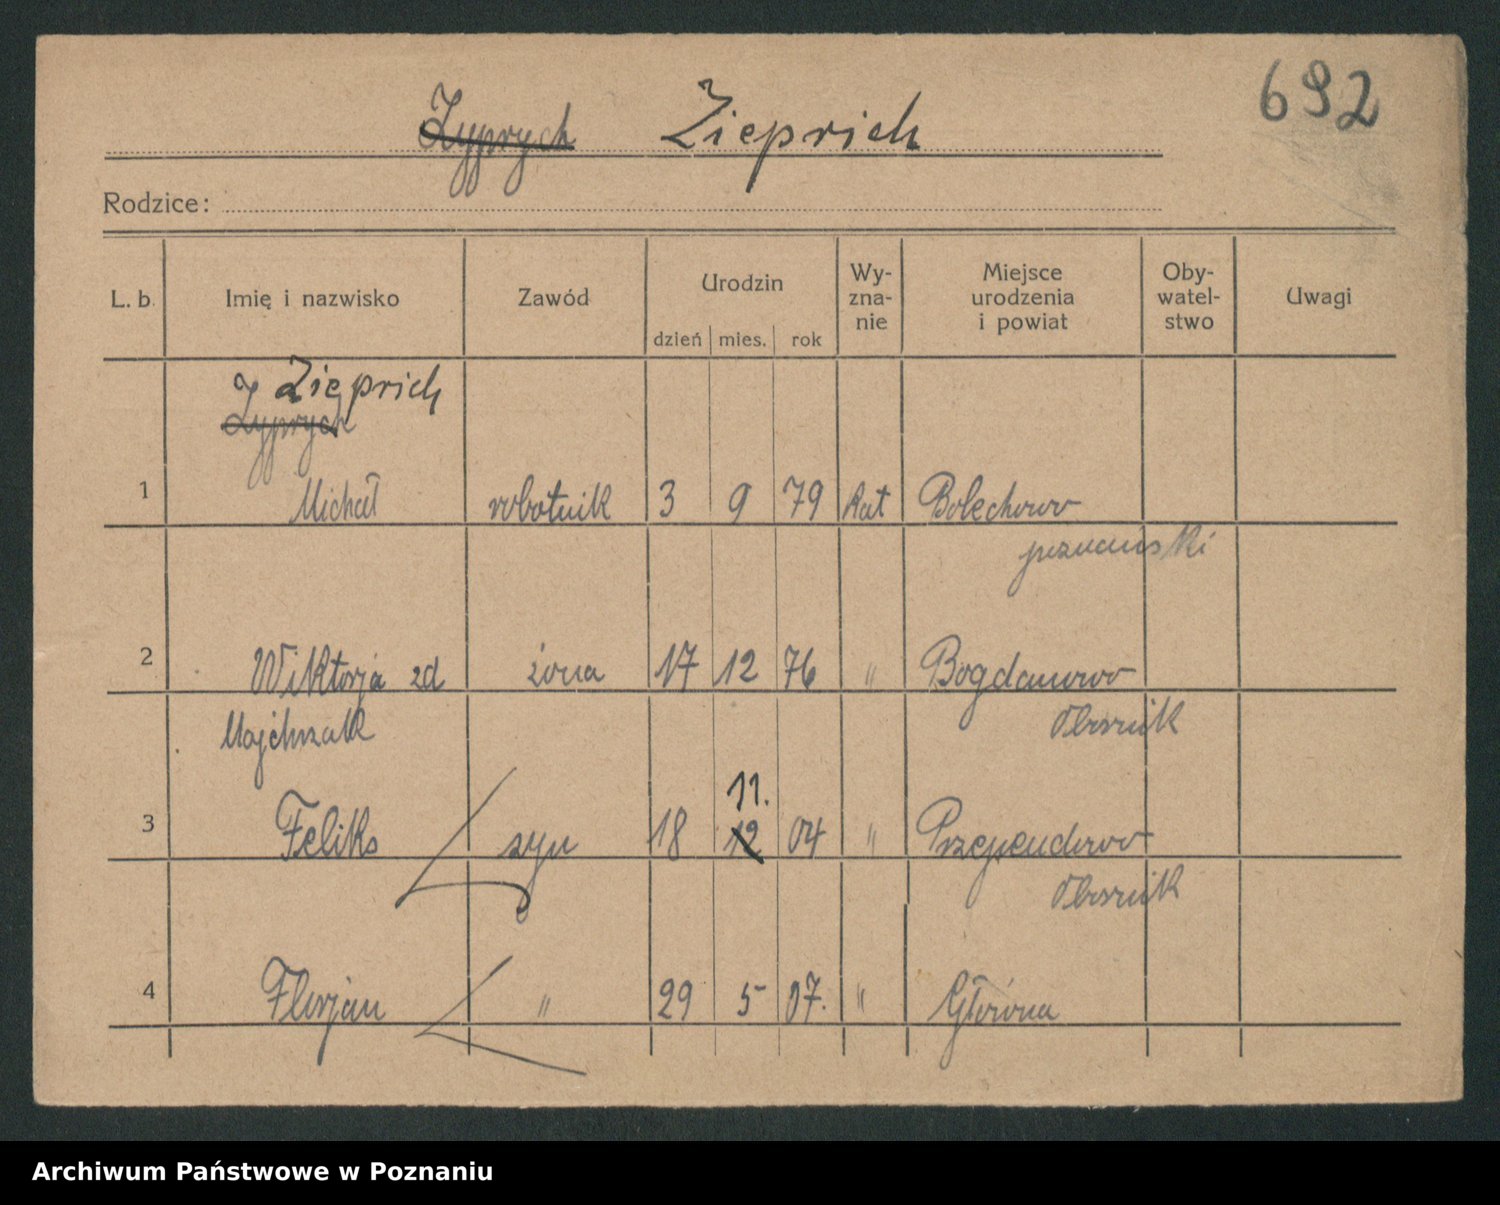 692
Zyprych Zieprich
Rodzice:
L. b. Imię i nazwisko Zawód Urodzin Wy-zna-nie Miejsce urodzenia i powiat Oby-watel-stwo Uwagi
dzień mies. rok
Zieprich
Zyprych
1 Michał robotnik 3 9 79 kat Bolechowo
poznański
2 Wiktorja zd żona 17 12 76 " Bogdanowo
Majchrzak Obornik
11.
3 Feliks syn 18 12 04 " Przependowo
Obornik
4 Florjan " 29 5 07. " Główna
Archiwum Państwowe w Poznaniu